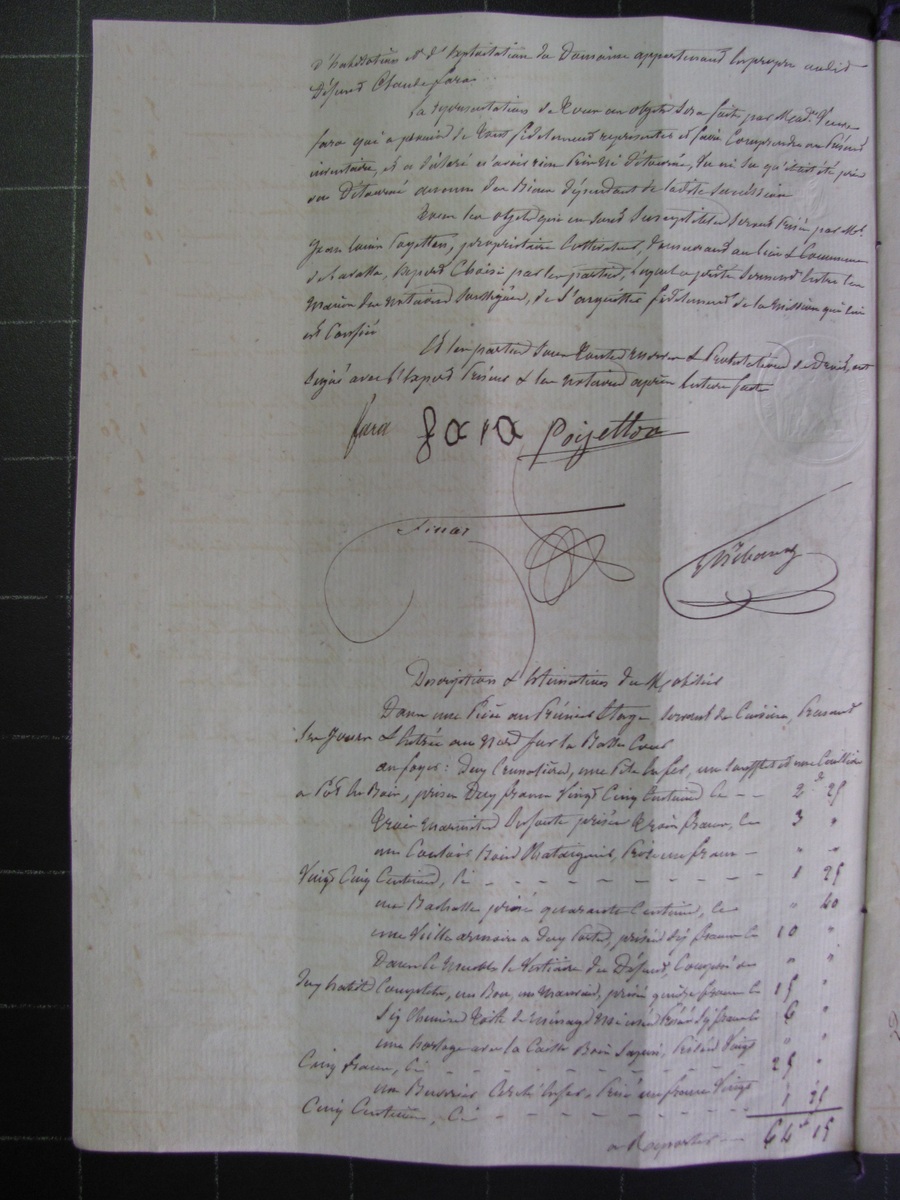 d'habitation et d'exploitation du Domaine appartenant en propre audit
défunt Claude fara.
La représentation de tous ces objets sera faite par Mad.e Veuve
fara qui a promis de tout fidèlement représenter et faire comprendre au présent
inventaire, et a déclaré n'avoir rien pris ni détourné, vu ni su qu'il ait été pris
ou détourné aucun des Biens dépendant de ladite succession
Tous les objets qui en sont susceptibles seront prisés par Mr.
Jean propriétaire cultivateur, demeurant au lieu & Commune
de expert choisi par les parties, lequel a prêté serment entre les
mains des notaires soussignés, de s'acquitter fidèlement de la mission qui lui
est confiée
Et les parties sous toutes réserves & Protestations de Droit, ont
signé avec l'expert Priseur & les notaires après lecture faite
fara fara
Description & Estimation du Mobilier
Dans une Pièce au Premier Etage, servant de Cuisine, Prenant
ses Jours & Entrée au Nord sur la Basse Cour
au foyer : Deux Crémaillères, une en fer, un soufflet et une Cuillère
à Pot en Bois, prisés Deux francs Vingt Cinq Centimes ce -- 2 f 25
Trois marmites en fonte prisées trois francs, ce 3 "
un Bois Prisé un franc -- " "
Vingt Cinq Centimes, Ci - - - - - - - 1 25
une prisé quarante Centimes, ce " 40
une Vieille armoire à deux Portes, prisée dix francs ce 10 "
Dans ce meuble le Vestiaire du Défunt, Composé de " "
Deux habits Complets, un Bon, un Mauvais, prisés quinze francs ce 15 "
Six Chemises Toile de Ménage prisées six francs ce 6 "
une horloge avec sa Caisse Bois Sapin, Prisée Vingt " "
Cinq francs, Ci - - - - - - - 25 "
un Cerclé en fer, Prisé un franc Vingt
Cinq Centimes, Ci - - - - - - - 1 25
à Reporter -- 64 f 15